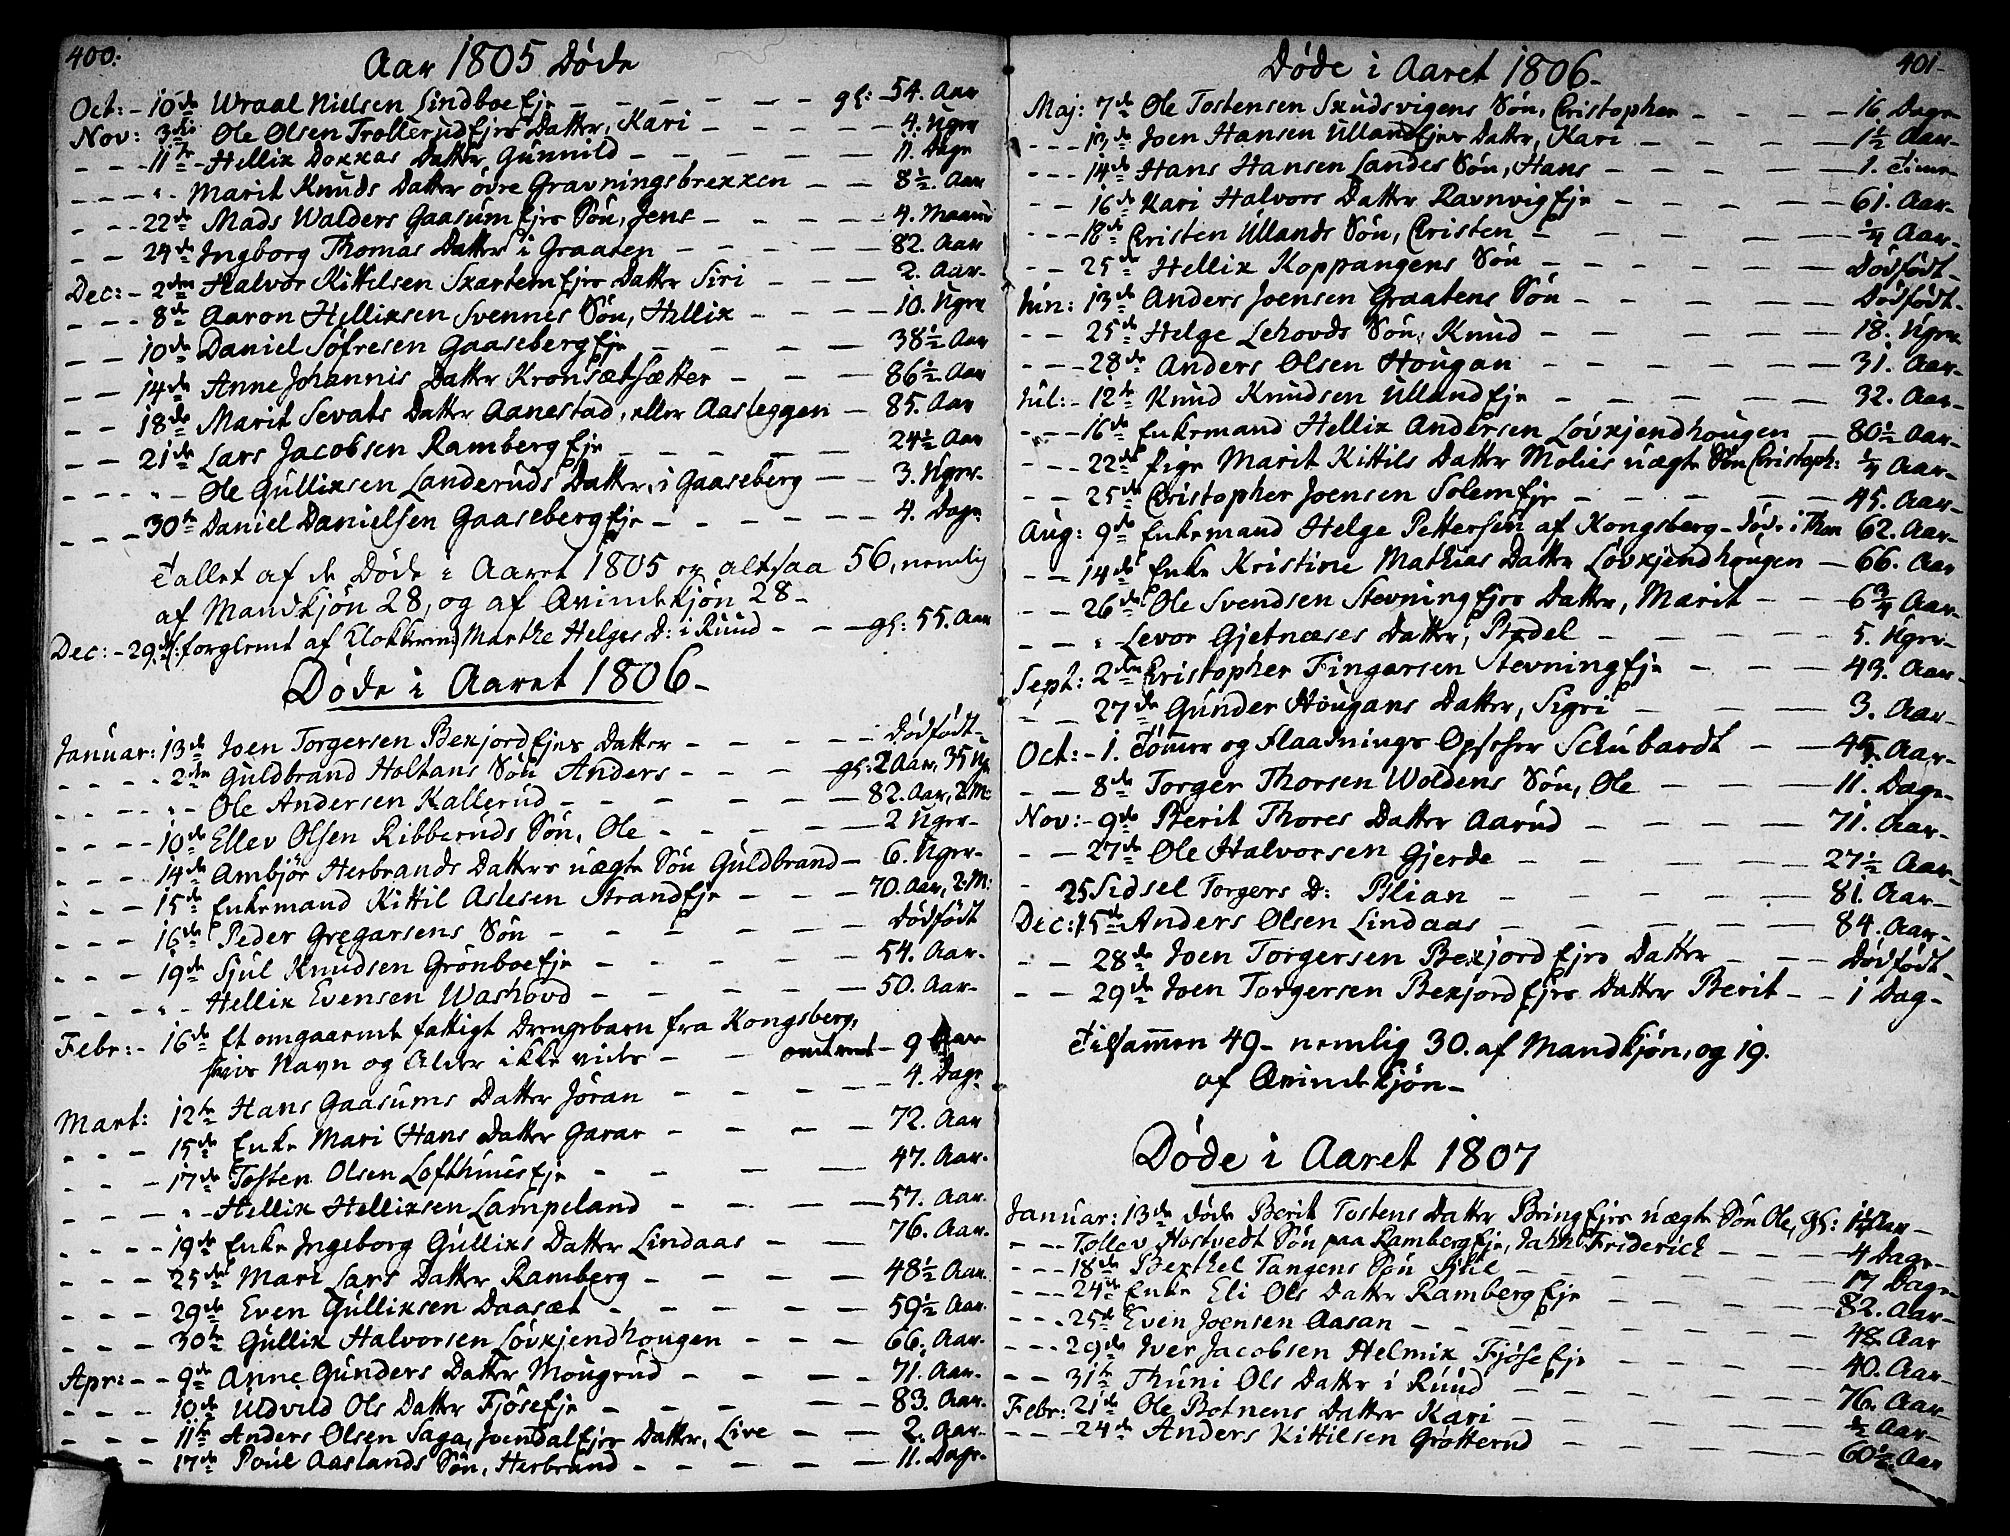 400.
Aar 1805 Døde
Oct: - 10de Wraal Nielsen Lindboe Eje - - - - - gl: 54. Aar
Nov: 3die Ole Olsen Trollerud Ejes Datter, Kari - - - - 4. Uger
- - - 11te - Hellix Doxxas Datter Gunnild - - - - - 11. Dage
- - - " - Marit Knuds Datter øvre Gravningsbrexxen - - 8½. Aar
- - - 22de Mads Walders Gaasum Ejes Søn, Jens - - - - 4. Maaned
- - 24de Ingborg Thomas Datter i Graaten - - - - 82. Aar
Dec: - 2den Halvor Kittilsen Skartem Ejes Datter Siri - - - 2. Aar-
- - - 8de Aaron Hellixsen Svennes Søn, Hellix - - - - 10. Uger
- - 10de Daniel Søfresen Gaaseberg Eje - - - - 38½ Aar
- - 14de Anne Johannis Datter Kronsætsætter - - - 86½. Aar
- - 18de Marit Sevats Datter Aanestad, eller Aasleggen - 85. Aar
- - 21de Lars Jacobsen Ramberg Eje - - - - 24½ Aar
- - - " - Ole Gullixsen Landeruds Datter, i Gaaseberg - - 3. Uger-
- - - 30te Daniel Danielsen Gaaseberg Eje - - - - - 4. Dage
Tallet af de Døde i Aaret 1805 er altsaa 56, nemlig
af Mandkjøn 28, og af Qvindekjøn 28-
Dec: - 29de (: forglemt af Klokkeren) Marthe Helges D: i Ruud - - - gl: 55. Aar
Døde i Aaret 1806-
Januar: 13de Joen Torgersen Bexjord Ejes Datter - - - - - Dødfødt-
- - - - 2den Guldbrand Holtans Søn Anders - - - - gl: 2 Aar, 35 Ug
- - - - " - Ole Andersen Kallerud - - - - - 82. Aar, 2 M:
- - - - 10de Ellev Olsen Ribberuds Søn, Ole - - - - - 2 Uger-
- - - 14de Ambjør Herbrands Datters uægte Søn Guldbrand - 6. Uger-
- - - 15de Enkemand Kittil Aslesen Strand Eje - - - 70. Aar, 2: M:
- - - 16de Peder Gregarsens Søn - - - - - Dødfødt
- - - 19de Sjul Knudsen Grønboe Eje - - - - 54. Aar-
- - - - " - Hellix Evensen Washovd - - - - 50. Aar-
Febr: - 16de Et omgaaende fattigt Drengebarn fra Kongsberg,
hvis Navn og Alder ikke vides - - omtrent - 9 Aar
Mart: 12te Hans Gaasums Datter Jøran - - - - 4. Dage
- - - 15de Enke Mari Hans Datter Garar - - - - 72. Aar
- - - 17de Tosten Olsen Lofthuus Eje - - - - 47. Aar-
- - - - " - Hellix Hellixsen Lampeland - - - - 57. Aar-
- - - - 19de Enke Ingeborg Gullixs Datter Lindaas - - - 76. Aar-
- - - - 25de Mari Lars Datter Ramberg - - - - 48½ Aar.
- - - 29de Even Gullixsen Daasæt - - - - - 59½ Aar.
- - - - 30te Gullix Halvorsen Løvxjendhougen - - - 66. Aar-
Apr: - - 9de Anne Gunders Datter Mougrud - - - - 71. Aar.
- - - 10de Uldvild Ols Datter Fjøse Eje - - - - 83. Aar.
- - - 11te Anders Olsen Saga, Joendal Ejes Datter, Live - - 2. Aar-
- - 17de Poul Aaslands Søn, Herbrand - - - - - 11. Dage-
401-
Døde i Aaret 1806-
Maj: 7de Ole Tostensen Skudsvigens Søn, Cristopher - - - - 16. Dage-
- - - 13de Joen Hansen Ulland Ejes Datter, Kari - - - - 1½ Aar-
- - - 14de Hans Hansen Landes Søn, Hans - - - - - 1. Time-
- - 16de Kari Halvors Datter Ravnvig Eje - - - - 61. Aar-
- - - 18de Cristen Ullands Søn, Cristen - - - - - ¼ Aar-
- - 25de Hellix Koppangens Søn - - - - - Dødfødt-
Jun: 13de Anders Joensen Graatens Søn - - - - - Dødfødt-
- - 25de Helge Lehovds Søn, Knud - - - - 18. Uger-
- - - 28de Anders Olsen Hougan - - - - - 31. Aar-
Jul: - 12te Knud Knudsen Ulland Eje - - - - 32. Aar-
- - - 16de Enkemand Hellix Andersen Løvxjendhougen - 80½ Aar-
- - - 22de Pige Marit Kittils Datter Molies uægte Søn Cristoph: ¼ Aar-
- - 25de Cristopher Joensen Solem Eje - - - - 45. Aar-
Aug: 9de Enkemand Helge Pettersen af Kongsberg - døde i Them 62. Aar-
- - 14de Enke Kristine Mathias Datter Løvxjendhougen - 66. Aar
- - 26de Ole Svendsen Stevning Ejes Datter, Marit - - 6¾ Aar-
- - " Levor Gjetnæses Datter, Bodel - - - - 5. Uger-
Sept: 2den Cristopher Fingarsen Stevning Eje - - - 43. Aar-
- - 27de Gunder Hougans Datter, Sigri - - - - 3. Aar-
Oct: - 1. Tømmer og Flaadnings Opseher Schubardt - - 45. Aar-
- - 8de Torger Thorsen Woldens Søn, Ole - - - - 11. Dage-
Nov: - 9de Berit Thores Datter Aarud - - - - 71. Aar-
- - 27de Ole Halvorsen Gjerde - - - - 27½ Aar-
- 25 Sidsel Torgers D: Blian - - - - 81. Aar-
Dec: 15de Anders Olsen Lindaas - - - - - 84. Aar-
- - 28de Joen Torgersen Bexjord Ejes Datter - - - Dødfødt-
- - 29de Joen Torgersen Bexjord Ejes Datter Berit - - 1 Dag-
Tilsammen 49- nemlig 30. af Mandkjøn, og 19.
af Qvindekjøn-
Døde i Aaret 1807
Januar: 13de døde Berit Tostens Datter Bring Ejes uægte Søn Ole, gl: 1½ Aar-
- - - Tollev Hostvedt Søn paa Ramberg Eje, Jahn Friderich - - - 4 Dage-
- - - 18de Berthel Tangens Søn Sjul - - - - - 17 Dage-
- - - 24de Enke Eli Ols Datter Ramberg Eje - - - - 82. Aar-
- - - 25de Even Joensen Aasan - - - - - 48 Aar
- - - 29de Iver Jacobsen Helmix Fjøse Eje - - - - 40. Aar-
- - 31te Thuni Ols Datter i Ruud - - - - 76. Aar-
Febr: 21de Ole Botnens Datter Kari - - - - ½ Aar-
- - - 24de Anders Kittilsen Grøtterud - - - - 60½. Aar